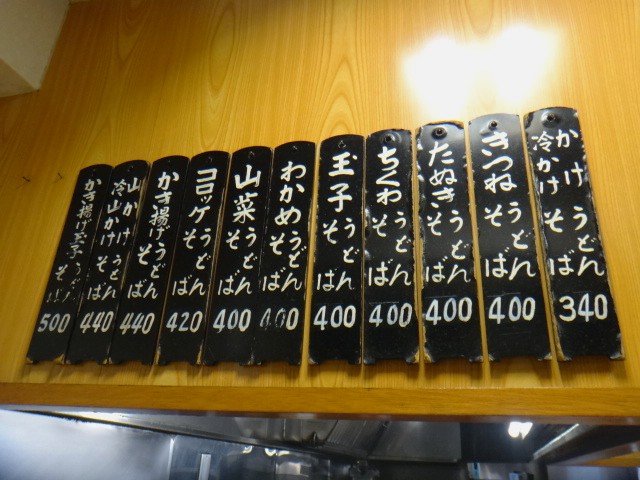 かけ
冷かけ
うどん
そば
340
きつね
うどん
そば
400
たぬき
うどん
そば
400
ちくわ
うどん
そば
400
玉子
うどん
そば
400
わかめ
うどん
そば
400
山菜
うどん
そば
400
コロッケ
うどん
そば
420
かき揚げ
うどん
そば
440
山かけ
冷山かけ
うどん
そば
440
かき揚げ玉子
うどん
そば
500